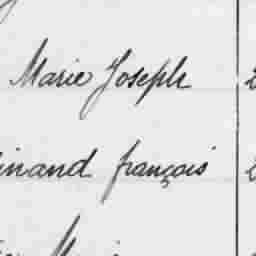 Marie Joseph
inand françois